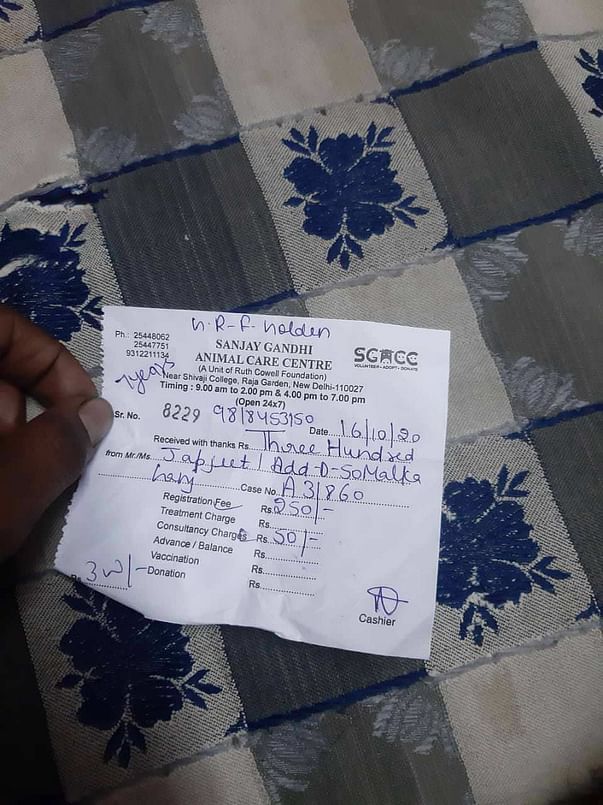 h.R-F. holden
Ph.: 25448062
25447751
9312211134
SANJAY GANDHI
ANIMAL CARE CENTRE
(A Unit of Ruth Cowell Foundation)
SGACC
VOLUNTEER • ADOPT • DONATE
7years
Near Shivaji College, Raja Garden, New Delhi-110027
Timing : 9.00 am to 2.00 pm & 4.00 pm to 7.00 pm
(Open 24x7)
Sr. No. 8229 9818453150 Date 16/10/20
Received with thanks Rs. Three Hundred
from Mr./Ms. Japjeet / Add-D-50 Malka
Ganj Case No. A31860
Registration Fee Rs. 250/-
Treatment Charge Rs.
Consultancy Charges Rs. 50/-
Advance / Balance Rs.
Vaccination Rs.
Donation Rs.
Rs. 300/-
Cashier